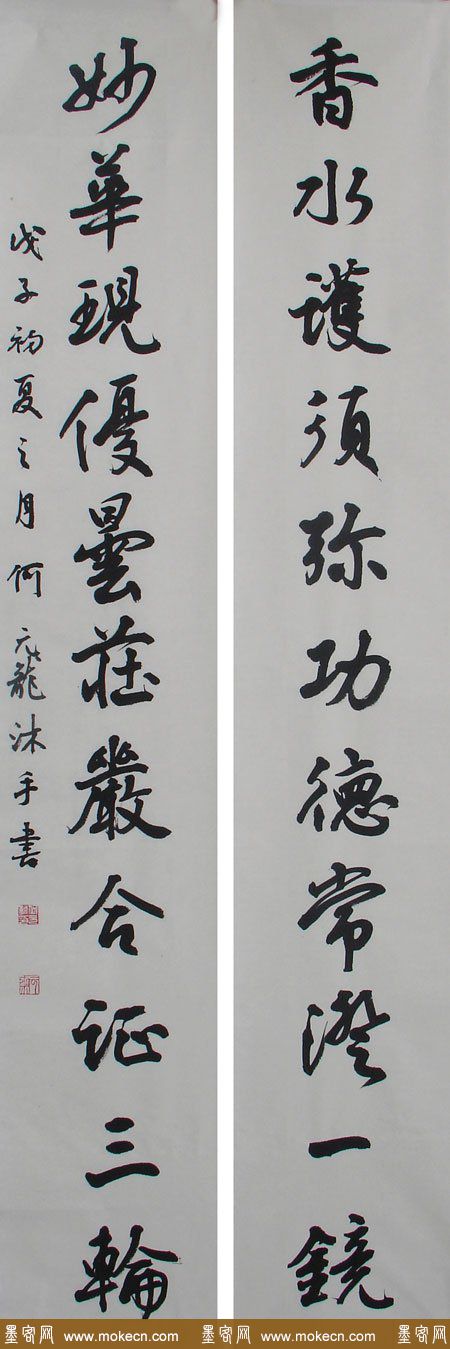 香水護須弥功德常澄一鏡
妙華現優曇莊嚴合证三輪
戊子初夏之月何元龍沐手書
墨客网 www.mokecn.com 墨客网 www.mokecn.com